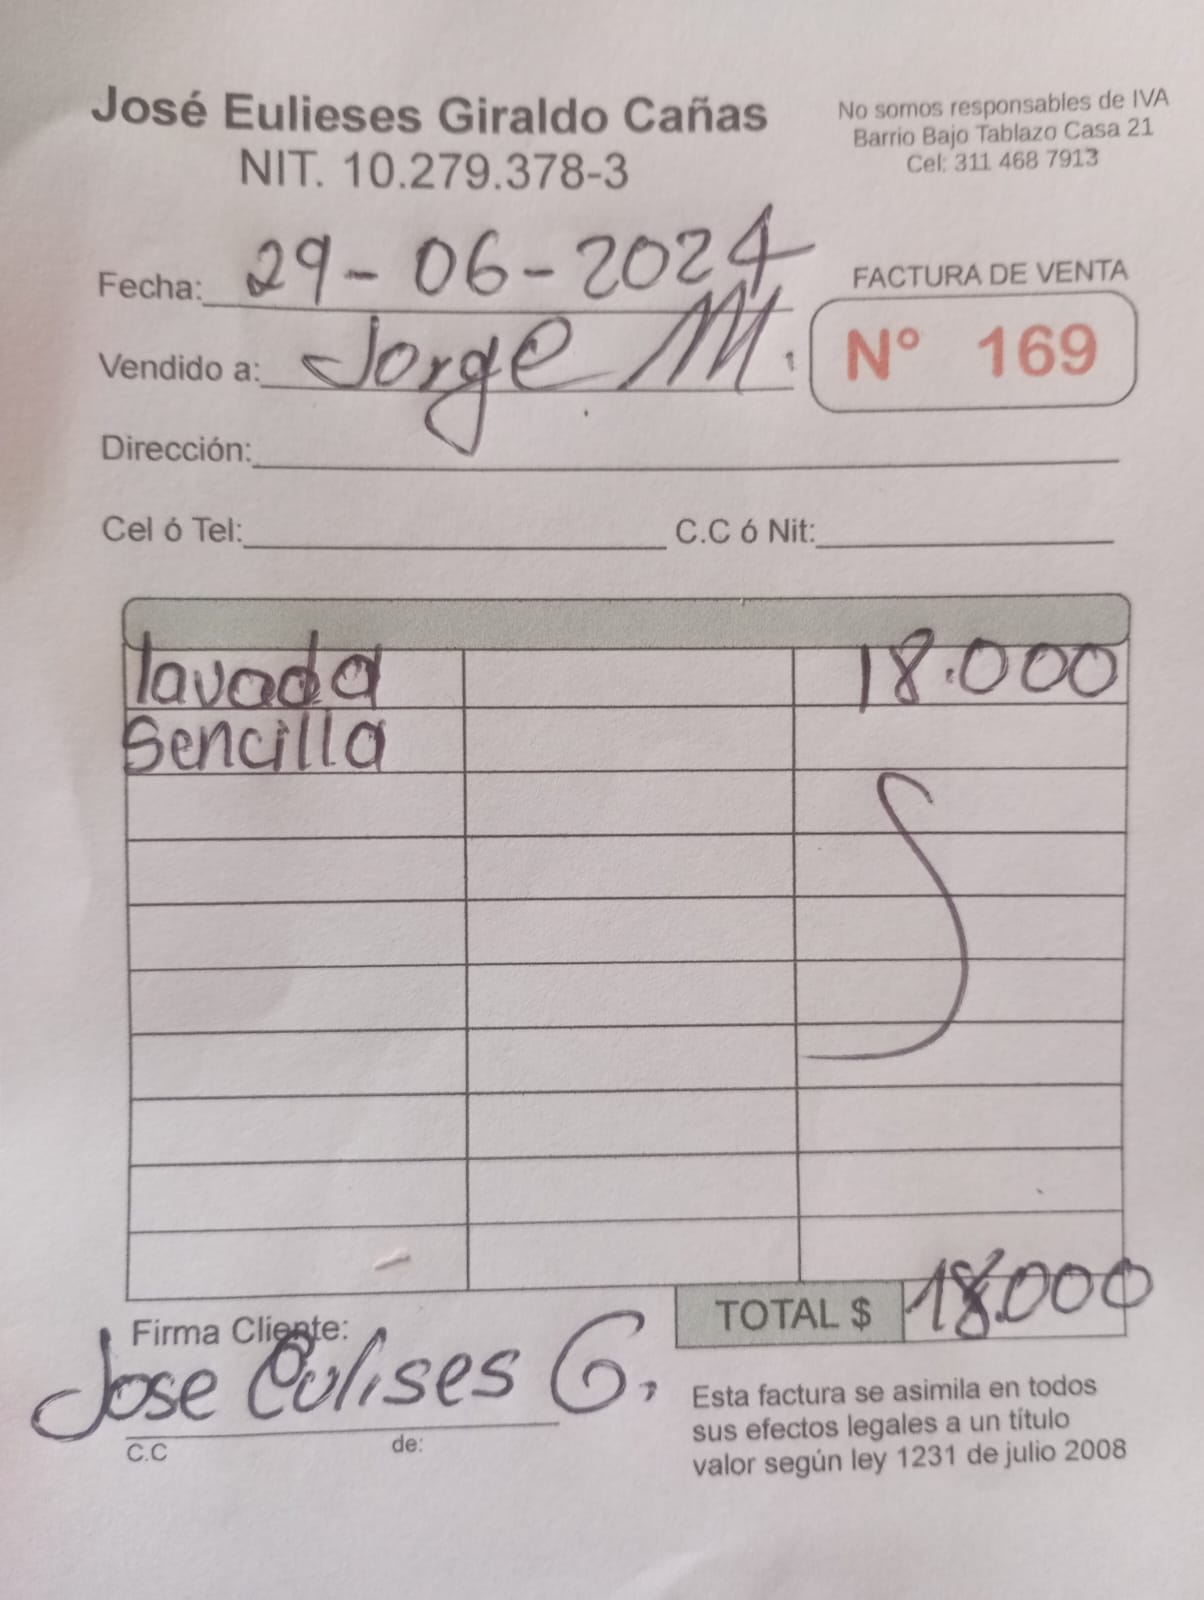 José Eulieses Giraldo Cañas
NIT. 10.279.378-3
No somos responsables de IVA
Barrio Bajo Tablazo Casa 21
Cel: 311 468 7913
Fecha: 29-06-2024
FACTURA DE VENTA
Nº 169
Vendido a: Jorge M.
Dirección:
Cel ó Tel: C.C ó Nit:
lavada 18.000
Sencilla
TOTAL $ 18.000
Firma Cliente:
Jose Eulises G.
C.C de:
Esta factura se asimila en todos
sus efectos legales a un título
valor según ley 1231 de julio 2008